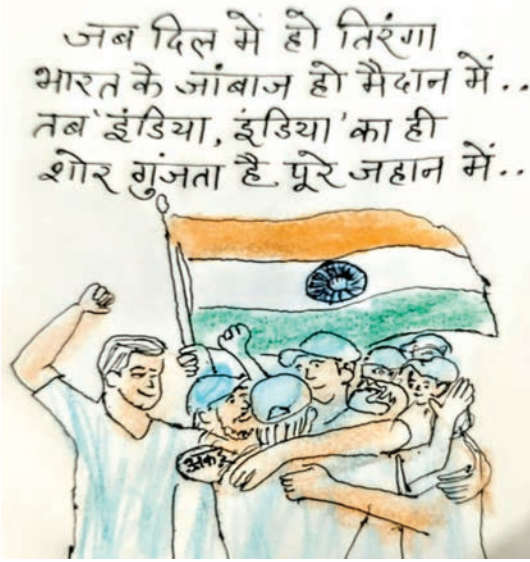 जब दिल में हो तिरंगा
भारत के जांबाज हो मैदान में..
तब 'इंडिया, इंडिया' का ही
शोर गुंजता है पूरे जहान में..